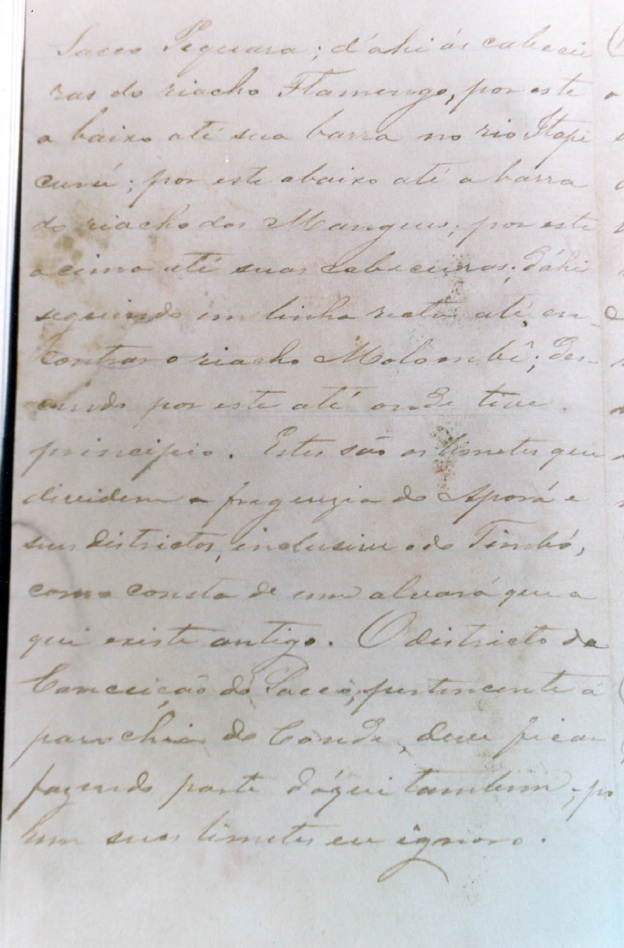 Sacco Pequara; d'ahi ás cabecei
ras do riacho Flamengo, por este
a baixo até sua barra no rio Itapi
curú; por este abaixo até a barra
do riacho dos Mangues; por este
acima até suas cabeceiras; d'ahi
seguindo em linha recta até en-
contrar o riacho Molombê; des-
cendo por este até onde teve
principio. Estes são os limetes que
dividem a freguezia do Aporá e
seus districtos, inclusive o do Timbó,
como consta de um alvará que a
qui existe antigo. O districto da
Conceição do Sacco, pertencente á
parochia do Conde, deve ficar
fazendo parte d'aqui tambem; po
hem suas limetes eu ignoro.